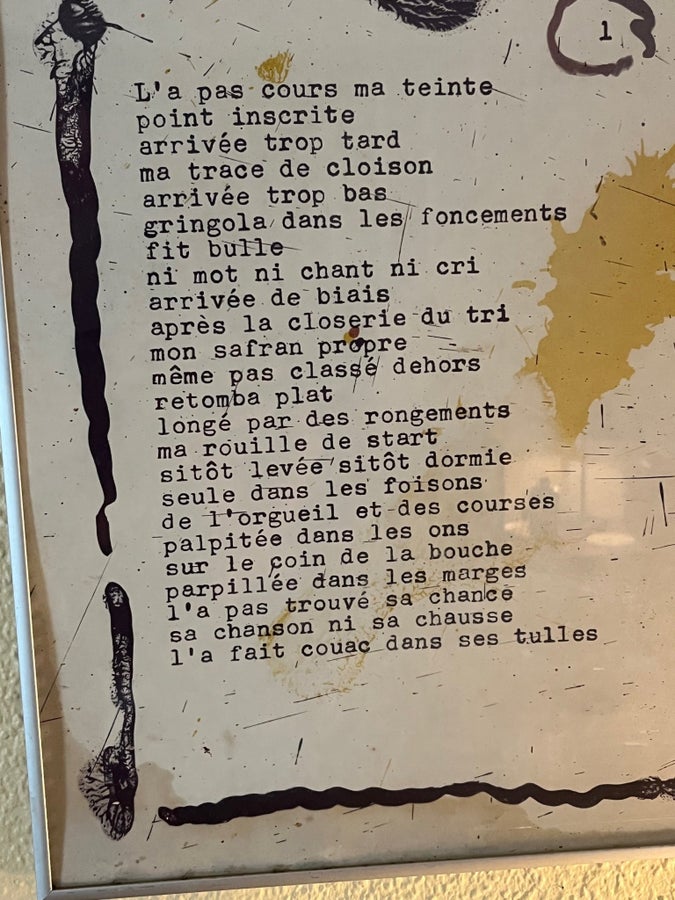 1
L'a pas cours ma teinte
point inscrite
arrivée trop tard
ma trace de cloison
arrivée trop bas
gringola dans les foncements
fit bulle
ni mot ni chant ni cri
arrivée de biais
après la closerie du tri
mon safran propre
même pas classé dehors
retomba plat
longé par des rongements
ma rouille de start
sitôt levée sitôt dormie
seule dans les foisons
de l'orgueil et des courses
palpitée dans les ons
sur le coin de la bouche
parpillée dans les marges
l'a pas trouvé sa chance
sa chanson ni sa chausse
l'a fait couac dans ses tulles